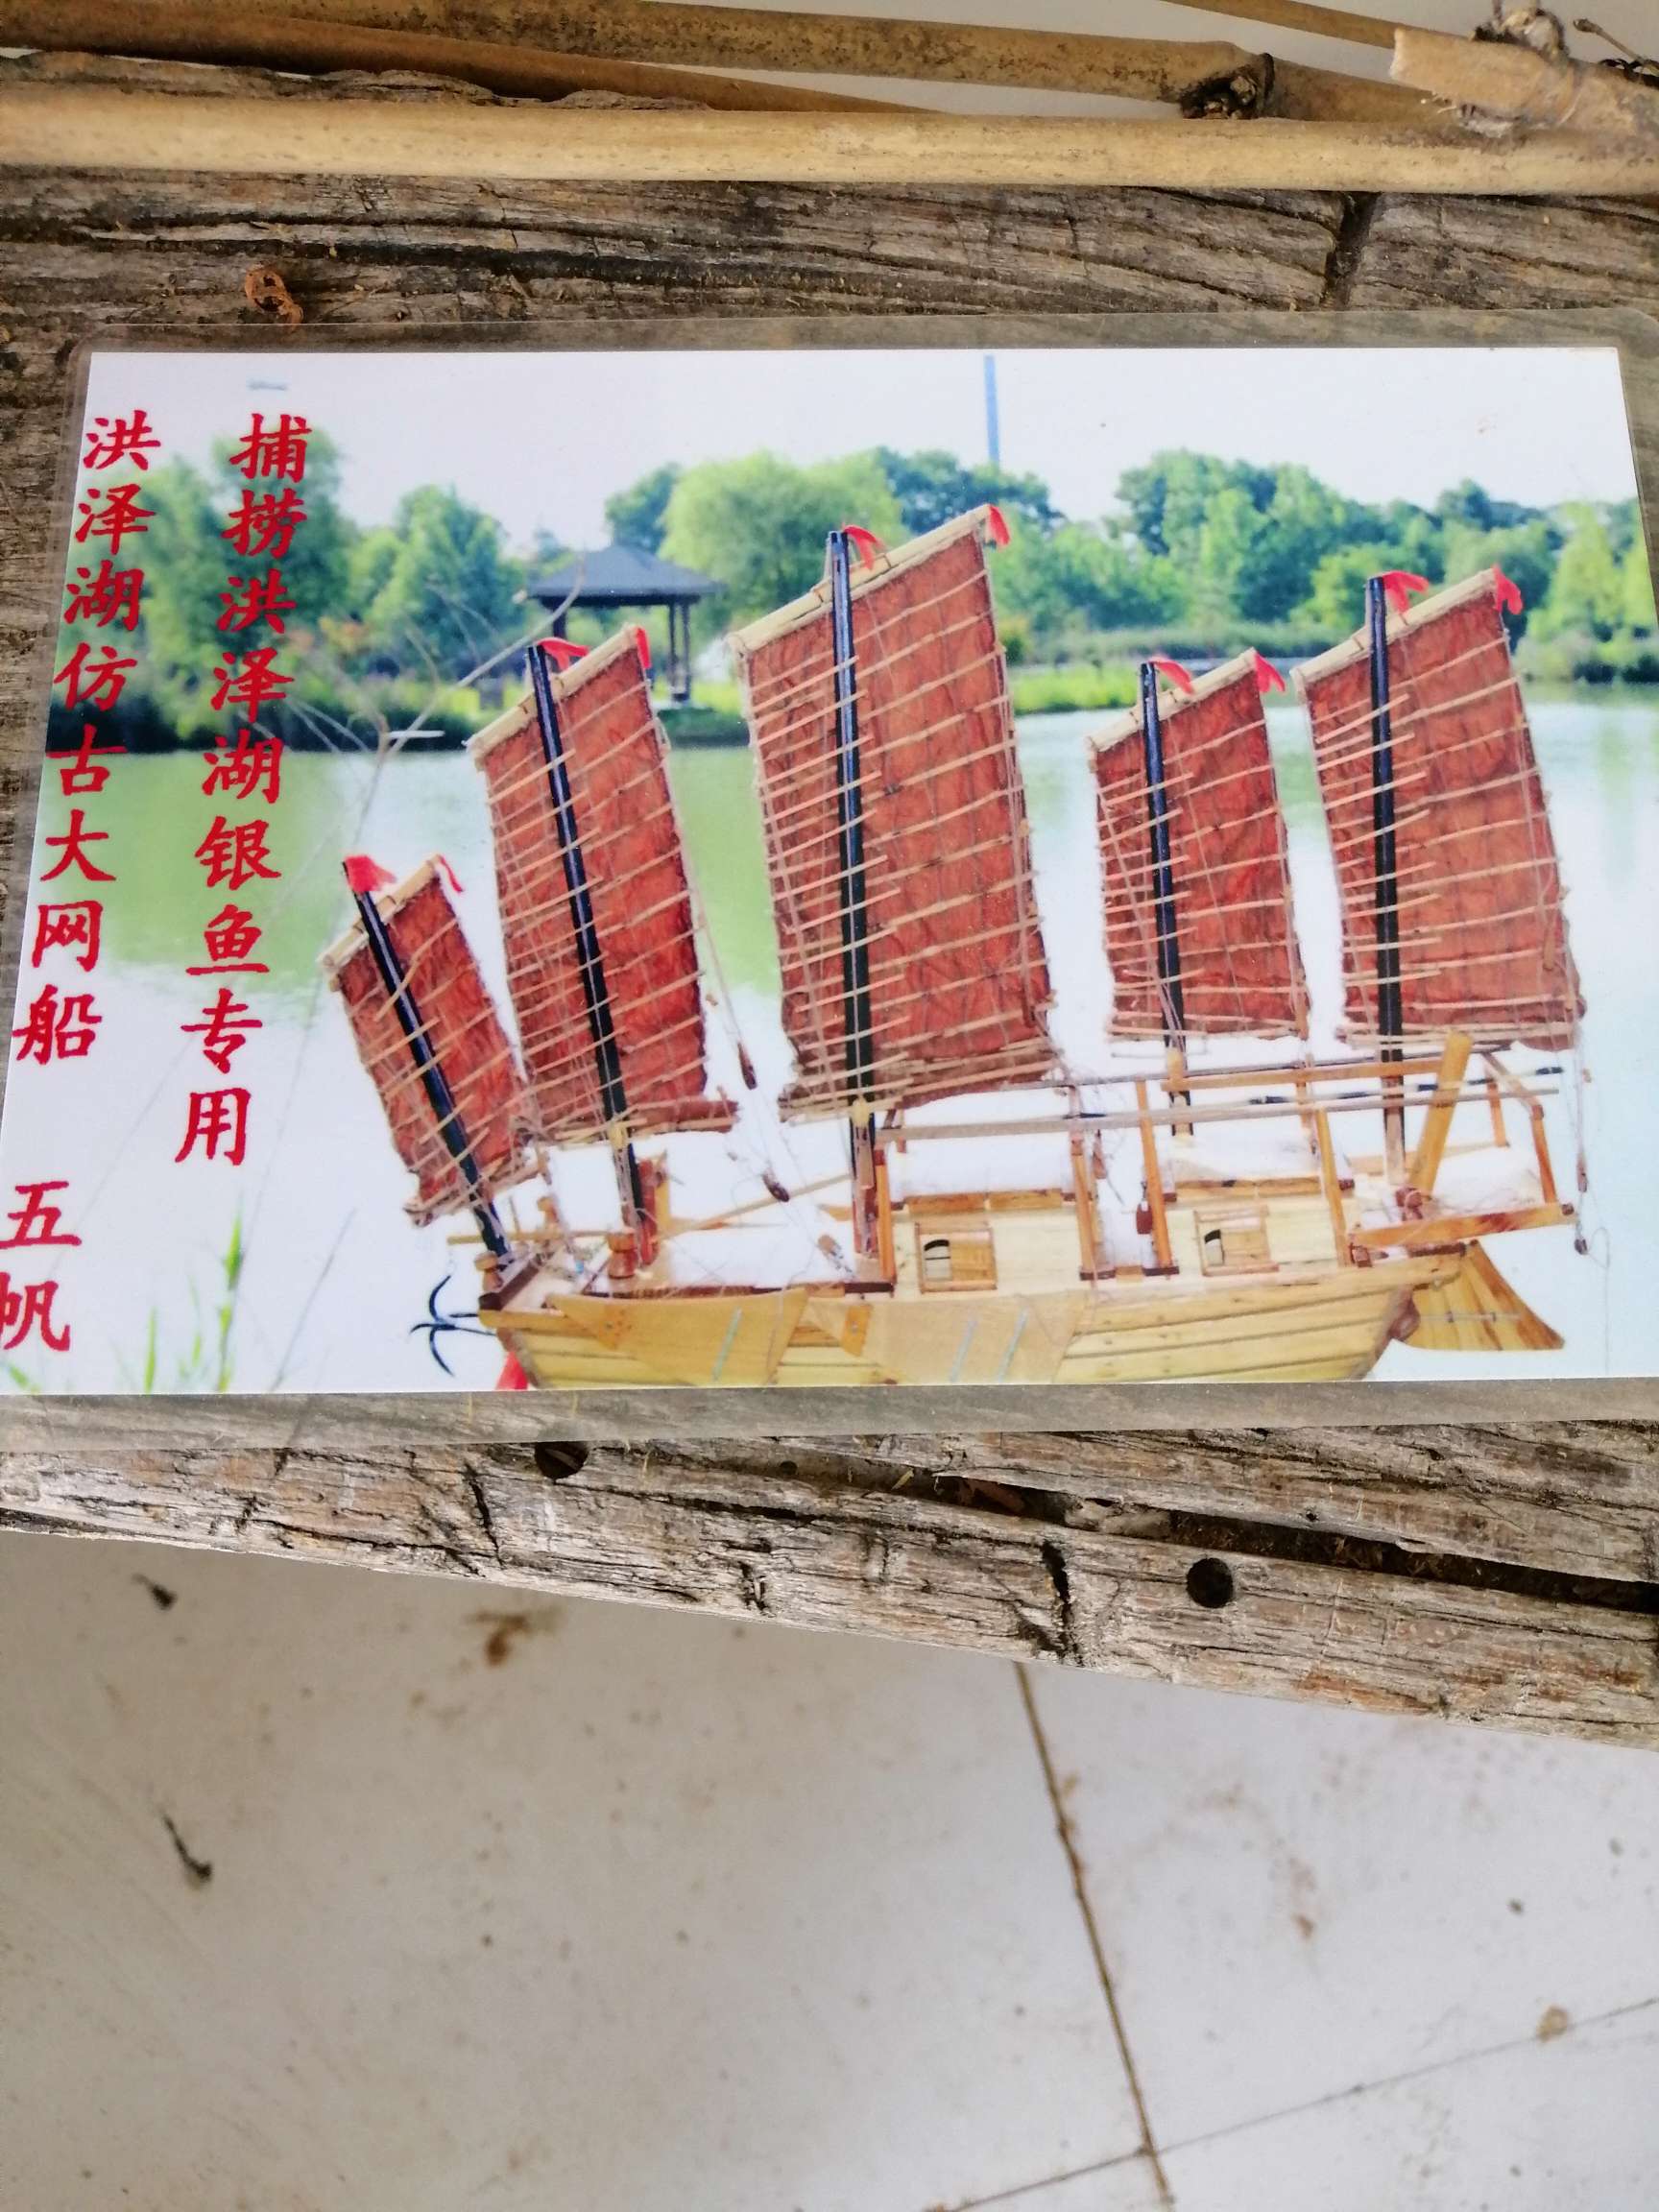 捕捞洪泽湖银鱼专用
洪泽湖仿古大网船 五帆